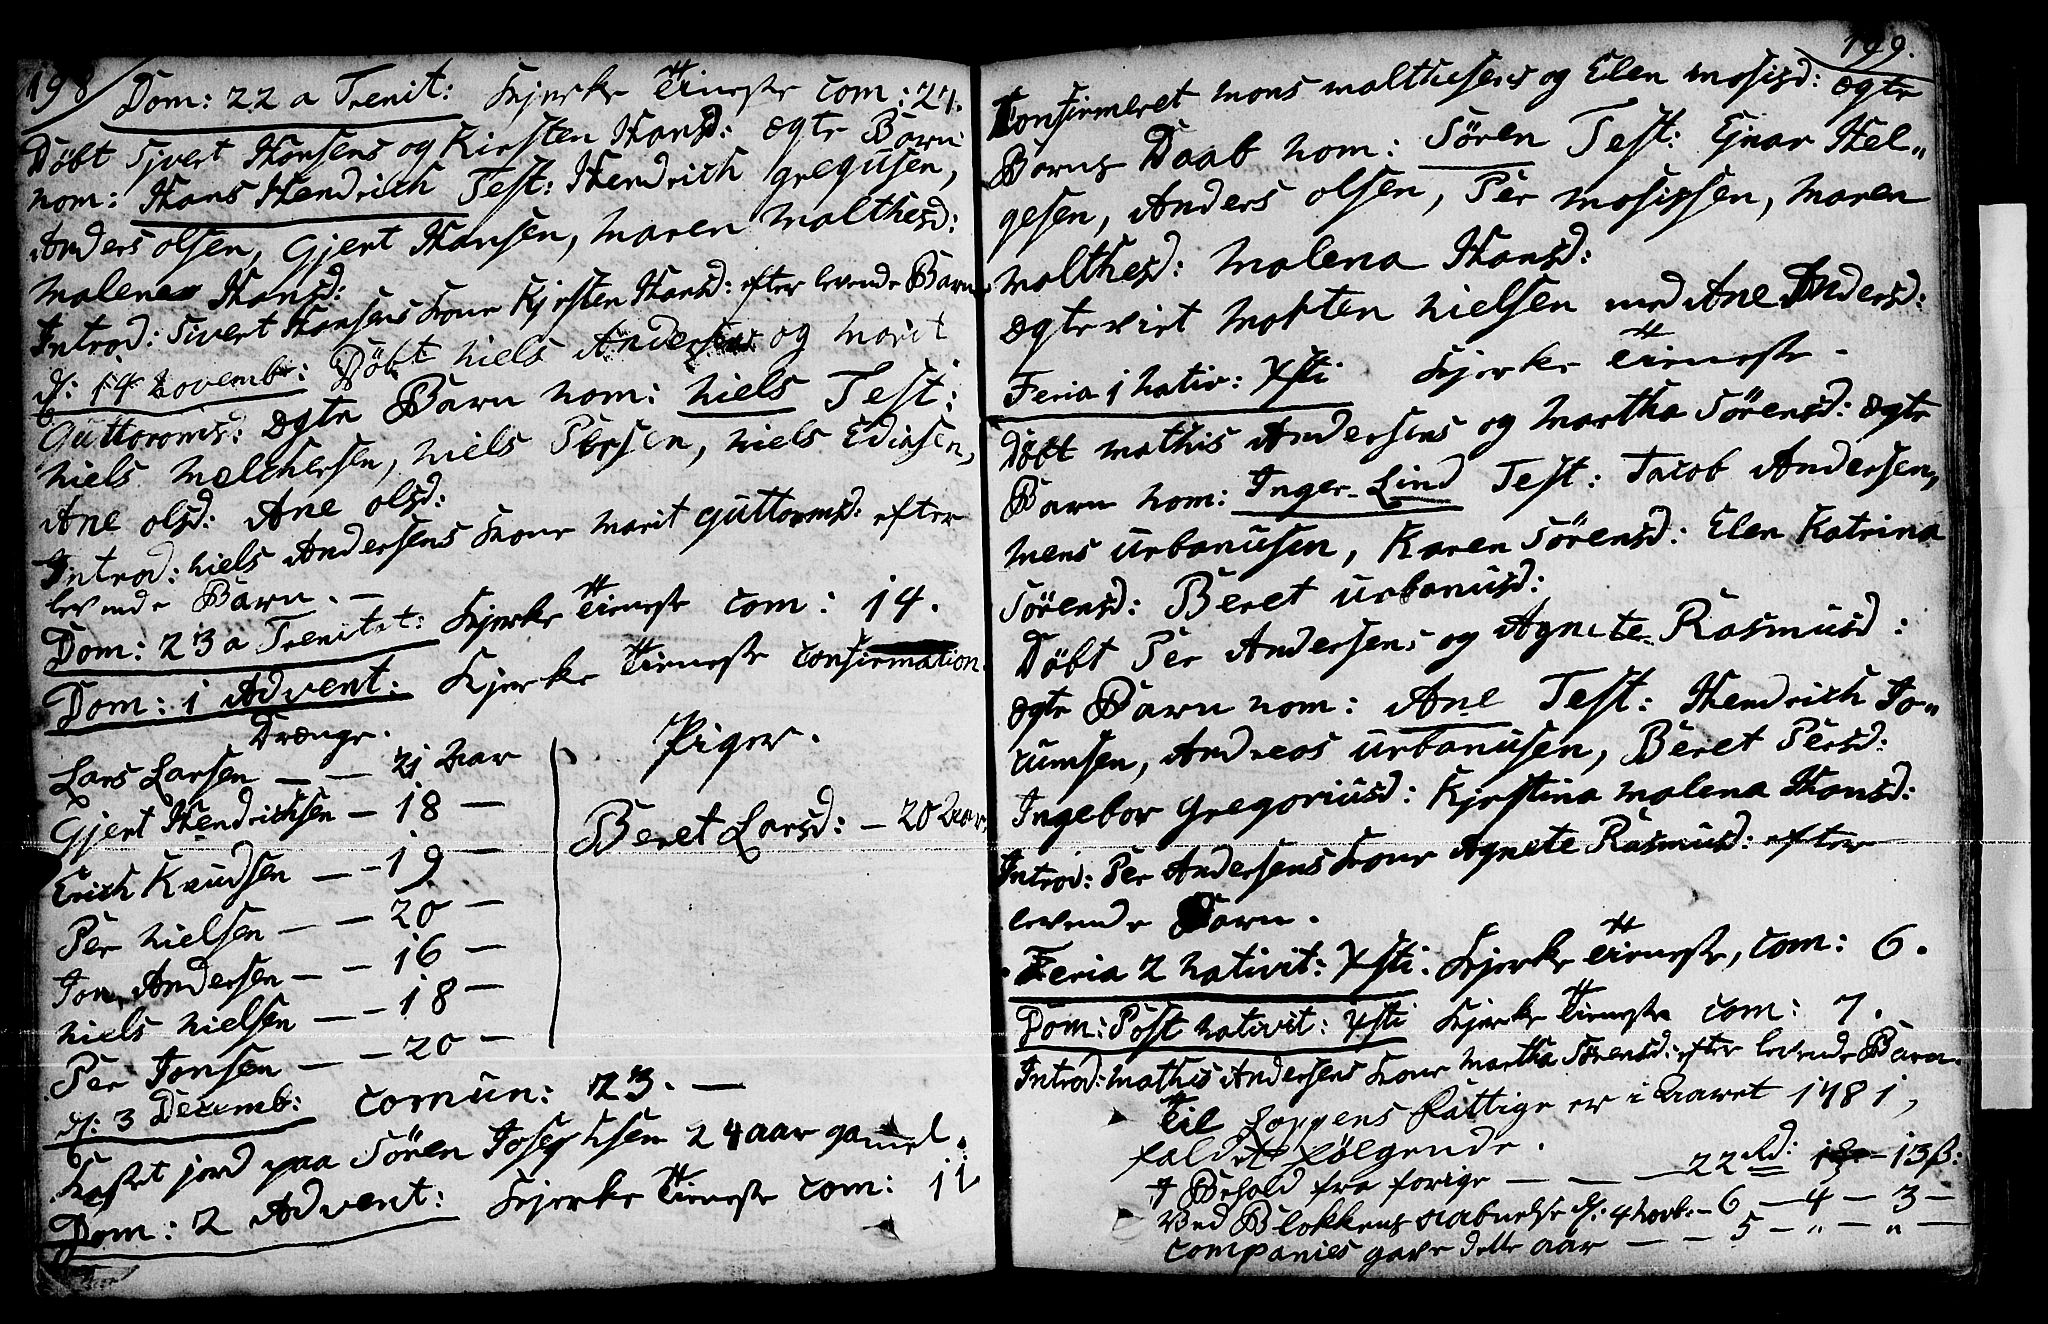 198
Dom: 22 a Trenit: Kjerke Tieneste com: 27.
Döbt Sjvert Hansens og Kirsten Hansd: ægte Barn
nom: Hans Hendrich Test: Hendrich gregusen,
Anders olsen, Gjert Hansen, maren Malthesd:
Malena Hansd:
Introd: Sivert Hansens Kone Kjrsten Hansd: efter levende Barn
d: 14 Novemb: Döbt niels Andersens og Marit
Guttormsd: ægte Barn nom: niels Test:
niels Melchersen, niels Persen, niels Edissen,
Ane olsd: Ane olsd:
Introd: niels Andersens Kone Marit guttormsd: efter
levende Barn. —
Dom: 23 a Trenitat: Kjerke Tieneste com: 14.
Dom: 1 Advent: Kjerke Tieneste confirmation.
Drænge.
Lars Larsen — — 21 Aar
Gjert Hendrichsen — 18 —
Erich Knudsen — — 19 —
Per Nielsen — — 20 —
Jon Andersen — — 16 —
niels nielsen — — 18 —
Per Jonsen — — 20 —
Piger.
Beret Larsd: — 20 Aar,
d: 3 Decemb: comun: 23. —
Kastet jord paa Sören Josephsen 24 aar gamel.
Dom: 2 Advent: Kjerke Tieneste com: 11
199.
Confirmeret mons malthesens og Elen mosisd: ægte
Barns Daab nom: Sören Test: Ejnar Hel„
gesen, Anders olsen, Per mosissen, maren
malthesd: Malena Hansd:
ægteviet Morten nielsen med Ane Andersd:
Feria 1 nativ: Xsti Kjerke Tieneste —
Döbt mathis Andersens og Martha Sörensd: ægte
Barn nom: Inger-Lind Test: Jacob Andersen,
Mens urbanusen, Karen Sörensd: Elen Katrina
Sörensd: Beret urbanusd:
Döbt Per Andersens og Agnete Rasmusd:
ægte Barn nom: Ane Test: Hendrich Jo„
cumsen, Andreas urbanusen, Beret Persd:
Ingebor gregoriusd: Kjrstina malena Hansd:
Introd: Per Andersens Kone Agnete Rasmusd: efter
levende Barn.
Feria 2 nativit: Xsti. Kjerke Tieneste, com: 6.
Dom: Post nativit: Xsti Kjerke Tieneste com: 7.
Introd: mathis Andersens Kone Martha Sörensd: efter levende Barn.
Til Loppens fattige er i Aaret 1781,
faldet fölgende.
I Behold fra forige — — — 22 Rd: — 13 ß:
Ved Blokkens aabnelse d: 4 Novb: — 6 — 4 — 3 —
Companies gave dette aar — — 5 — „ — „ —